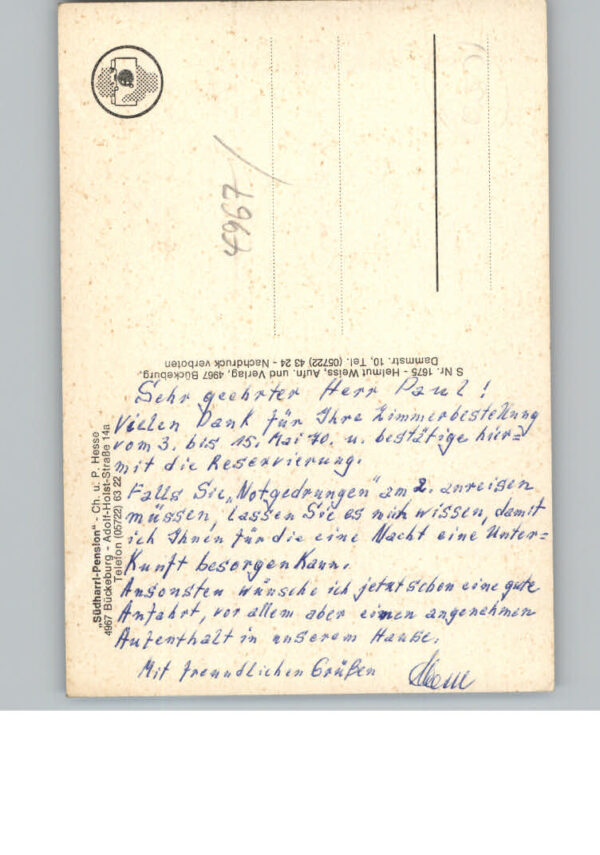 4967
S Nr. 1675 - Helmut Weiss, Aufn. und Verlag, 4967 Bückeburg,
Dammstr. 10, Tel. (05722) 43 24 - Nachdruck verboten
"Südharrl-Pension" - Ch. u. P. Hesse
4967 Bückeburg - Adolf-Holst-Straße 14a
Telefon (05722) 63 22
Sehr geehrter Herr Paul!
Vielen Dank für Ihre Zimmerbestellung
vom 3. bis 15. Mai 70. u. bestätige hier=
mit die Reservierung.
Falls Sie „Notgedrungen" am 2. anreisen
müssen, lassen Sie es mich wissen, damit
ich Ihnen für die eine Nacht eine Unter=
Kunft besorgen kann.
Ansonsten wünsche ich jetzt schon eine gute
Anfahrt, vor allem aber einen angenehmen
Aufenthalt in unserem Hauße.
Mit freundlichen Grüßen